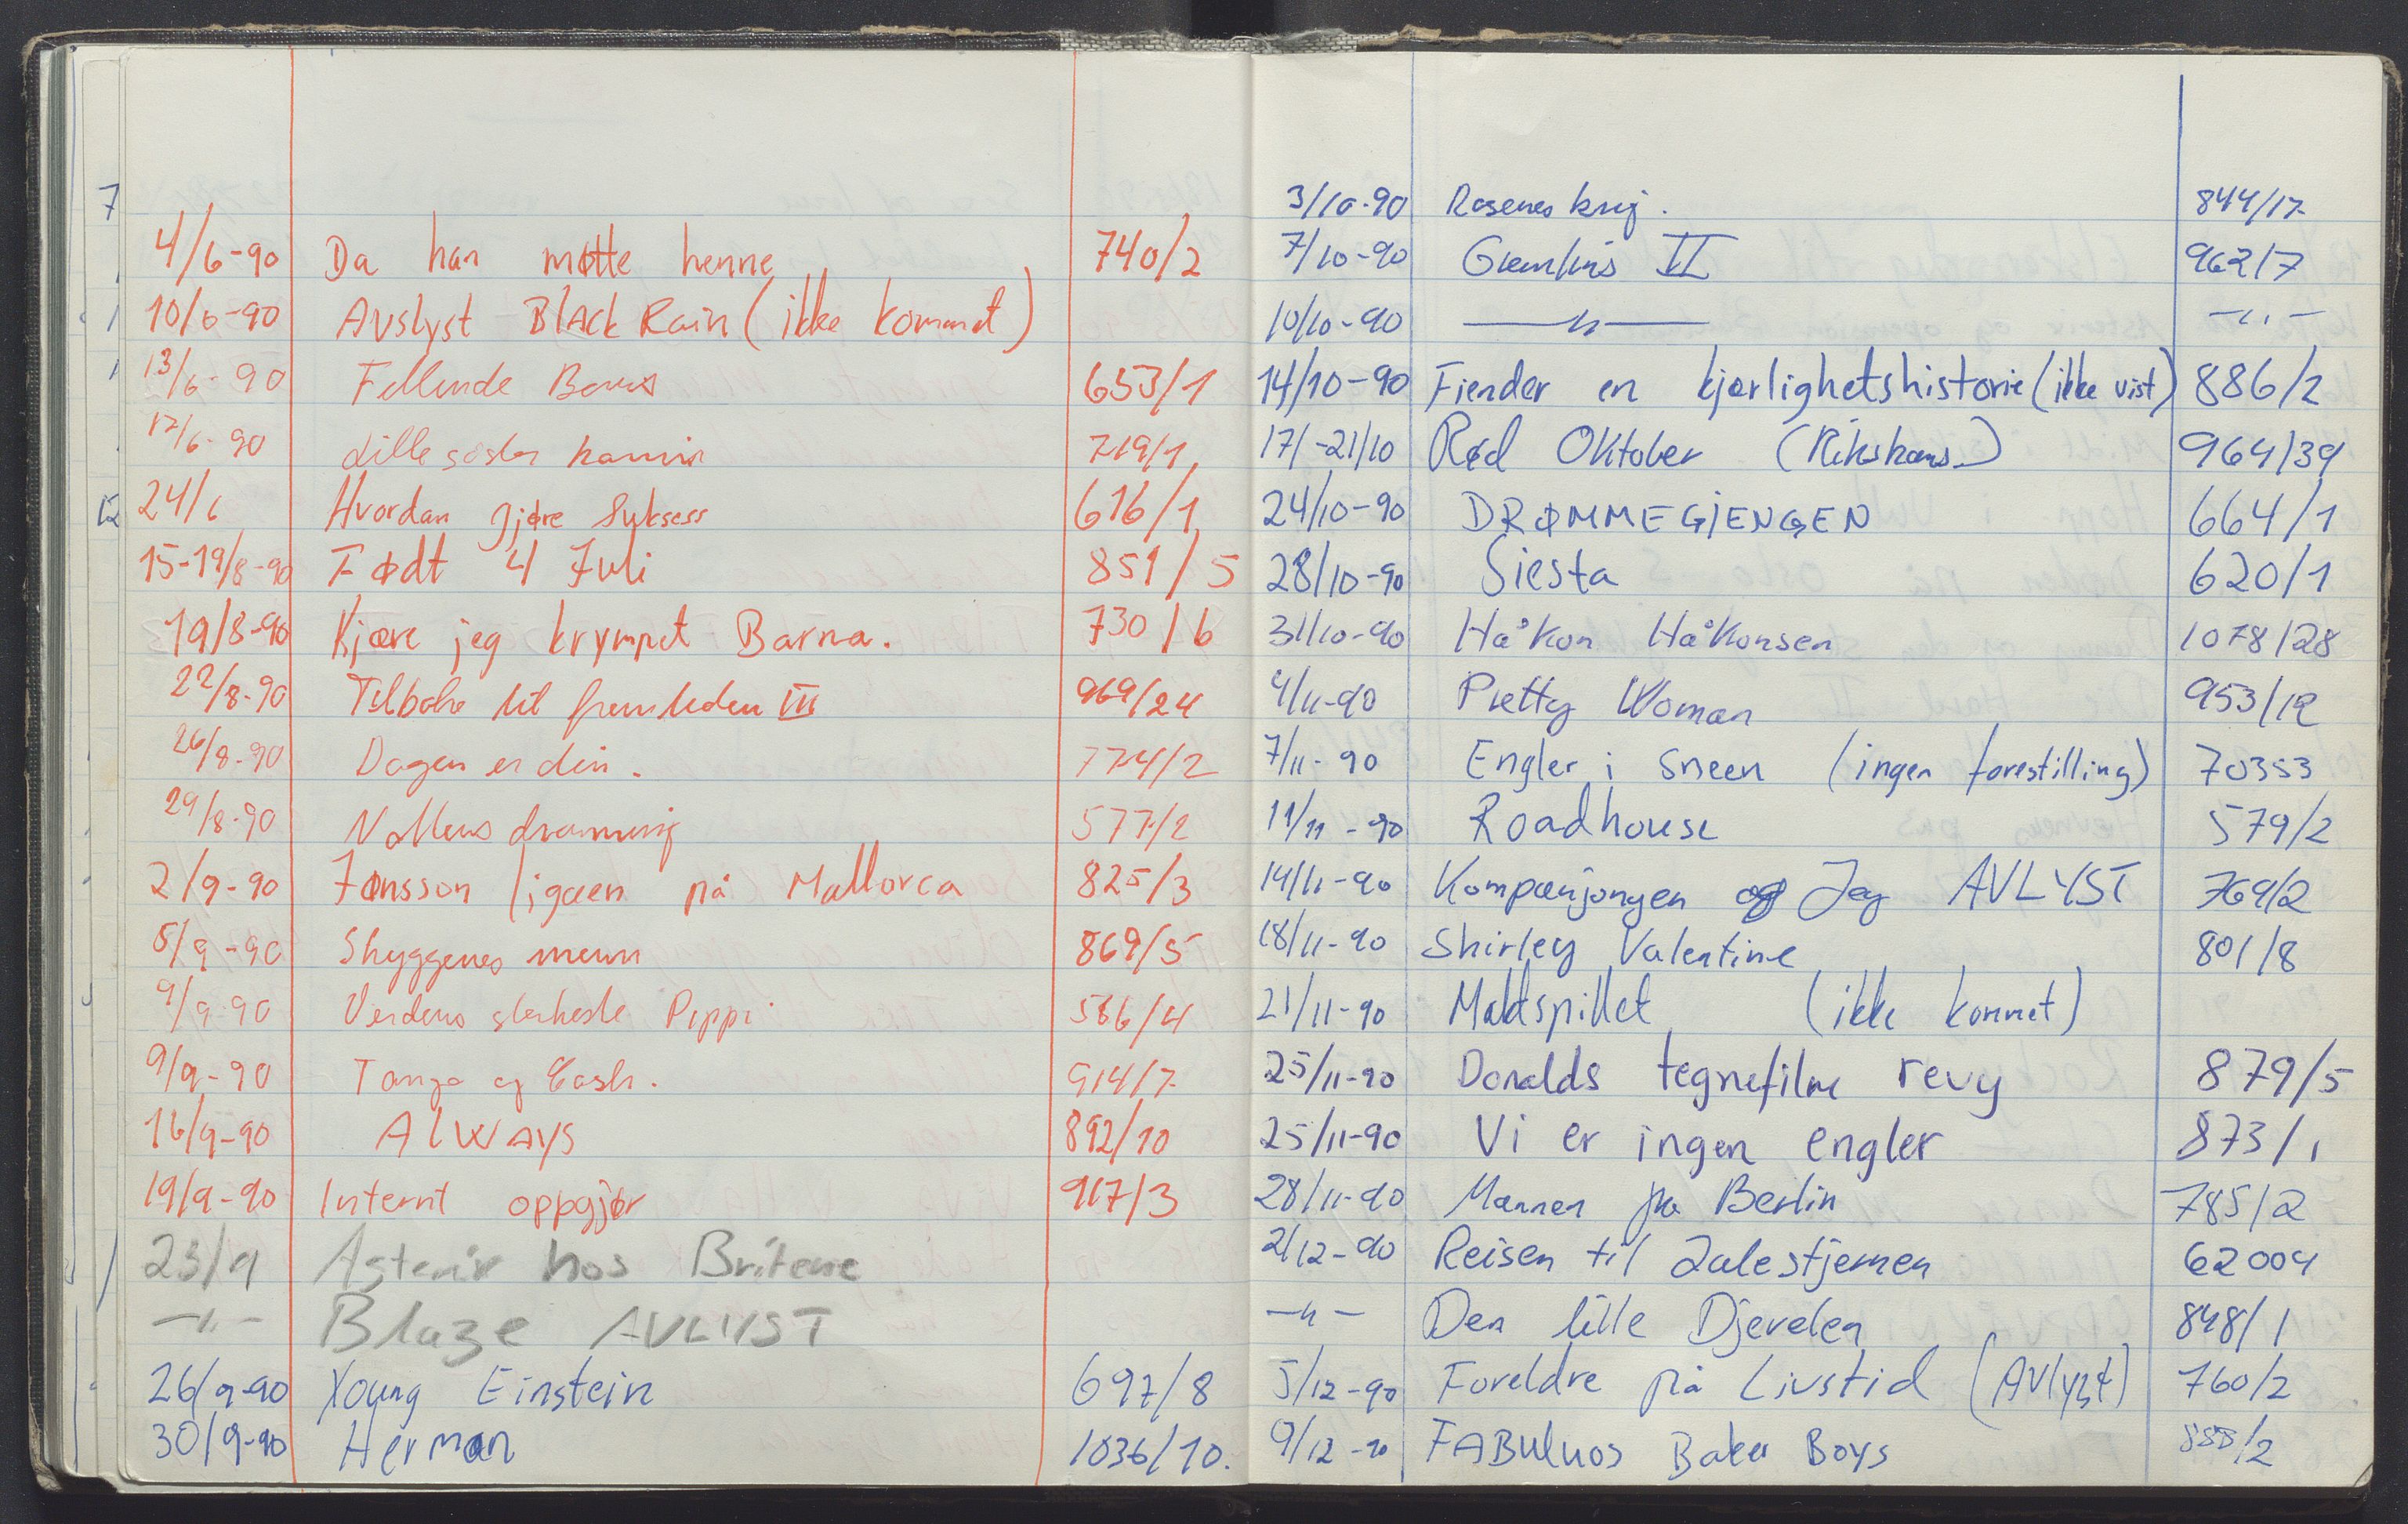 7
4/6-90 Da han møtte henne 740/2
10/6-90 Avslyst Black Rain (ikke kommet)
13/6-90 Fellende Bevis 653/1
17/6-90 Lille søster kanin 719/1
24/6 Hvordan gjøre Suksess 616/1
12
15-19/8-90 Født 4 Juli 851/5
19/8-90 Kjære jeg krympet Barna. 730/6
22/8-90 Tilbake til fremtiden III 969/24
26/8-90 Dagen er din. 774/2
29/8-90 Nattens dronning 577/2
2/9-90 Jønsson ligaen på Mallorca 825/3
5/9-90 Skyggenes menn 869/5
9/9-90 Verdens sterkeste Pippi 586/4
9/9-90 Tango og Cash. 914/7
16/9-90 Always 892/10
19/9-90 Internt oppgjør 917/3
23/9 Asterix hos Britene
—〃— Blaze AVLYST
26/9-90 Young Einstein 697/8
30/9-90 Herman 1036/10.
3/10-90 Rosenes krig. 844/17
7/10-90 Gremlins II 962/7
10/10-90 —〃— —〃—
14/10-90 Fiender en kjærlighetshistorie (ikke vist) 886/2
17/-21/10 Rød Oktober (Rikskons.) 964/39
24/10-90 DRØMMEGJENGEN 664/1
28/10-90 Siesta 620/1
31/10-90 Håkon Håkonsen 1078/28
4/11-90 Pretty Woman 953/12
7/11-90 Engler i sneen (ingen forestilling) 70353
11/11-90 Roadhouse 579/2
14/11-90 Kompanjongen og Jeg AVLYST 769/2
18/11-90 Shirley Valentine 801/8
21/11-90 Maktspillet (ikke kommet)
25/11-90 Donalds tegnefilm revy 879/5
25/11-90 Vi er ingen engler 873/1
28/11-90 Mannen fra Berlin 785/2
2/12-90 Reisen til Julestjernen 62004
—〃— Den lille Djevelen 848/1
5/12-90 Foreldre på Livstid (Avlyst) 760/2
9/12-90 FABULUOS Baker Boys 888/2